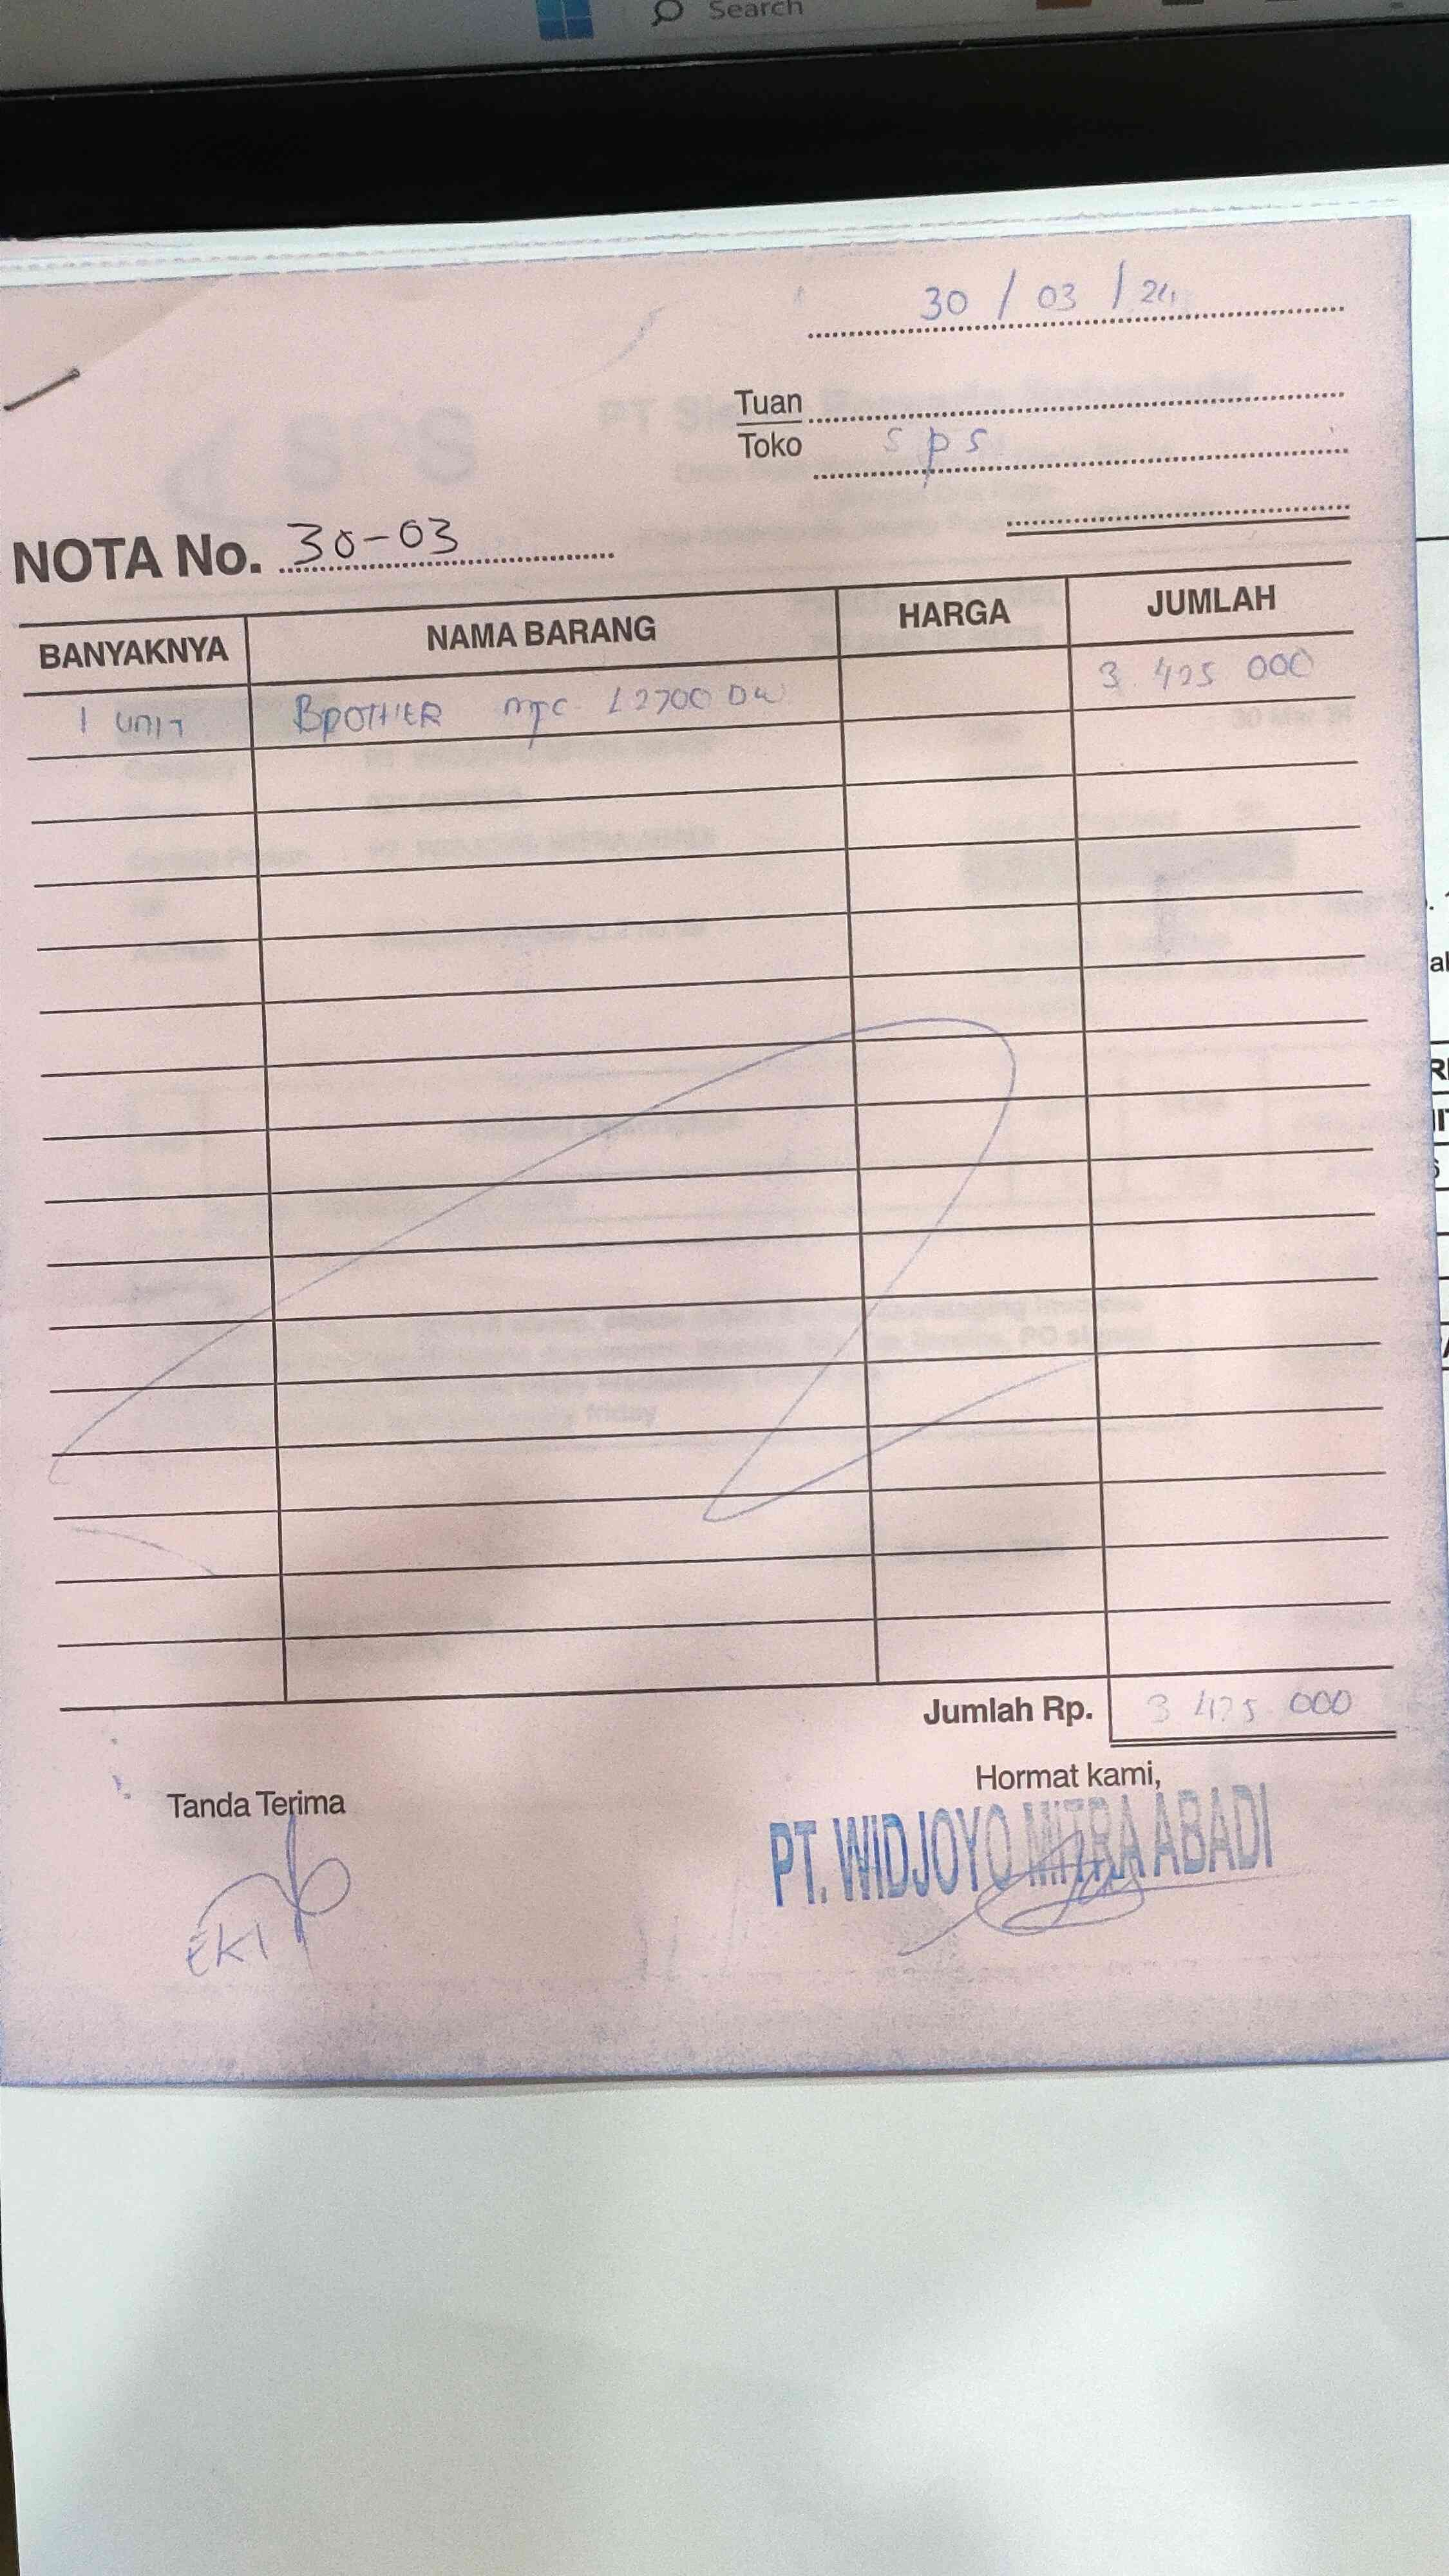 Search
30 / 03 / 24
Tuan
Toko sps
NOTA No. 30-03
BANYAKNYA NAMA BARANG HARGA JUMLAH
1 UNIT BROTHER MFC L2700 DW 3.475 000
Jumlah Rp. 3 475 000
Tanda Terima Hormat kami,
PT. WIDJOYO MITRA ABADI
EKI